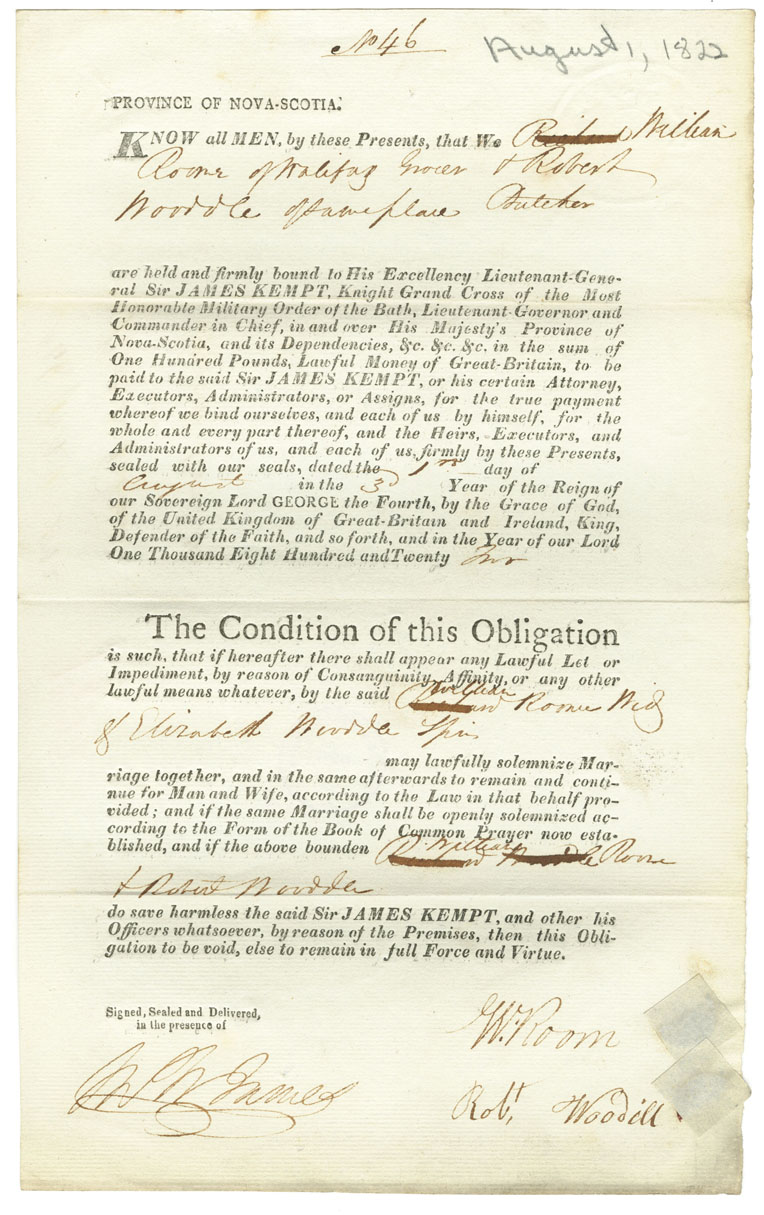 No 46
August 1, 1822
PROVINCE OF NOVA-SCOTIA.
KNOW all MEN, by these Presents, that We Richard William
Roome of Halifax Grocer & Robert
Wooddle of same place Butcher
are held and firmly bound to His Excellency Lieutenant-Gene-
ral Sir JAMES KEMPT, Knight Grand Cross of the Most
Honorable Military Order of the Bath, Lieutenant-Governor and
Commander in Chief, in and over His Majesty's Province of
Nova-Scotia, and its Dependencies, &c. &c. &c. in the sum of
One Hundred Pounds, Lawful Money of Great-Britain, to be
paid to the said Sir JAMES KEMPT, or his certain Attorney,
Executors, Administrators, or Assigns, for the true payment
whereof we bind ourselves, and each of us by himself, for the
whole and every part thereof, and the Heirs, Executors, and
Administrators of us, and each of us, firmly by these Presents,
sealed with our seals, dated the 1st day of
August in the 3d Year of the Reign of
our Sovereign Lord GEORGE the Fourth, by the Grace of God,
of the United Kingdom of Great-Britain and Ireland, King,
Defender of the Faith, and so forth, and in the Year of our Lord
One Thousand Eight Hundred and Twenty Two
The Condition of this Obligation
is such, that if hereafter there shall appear any Lawful Let or
Impediment, by reason of Consanguinity, Affinity, or any other
lawful means whatever, by the said William Roome Wid
& Elizabeth Wooddle Spin
may lawfully solemnize Mar-
riage together, and in the same afterwards to remain and conti-
nue for Man and Wife, according to the Law in that behalf pro-
vided; and if the same Marriage shall be openly solemnized ac-
cording to the Form of the Book of Common Prayer now esta-
blished, and if the above bounden William Roome
& Robert Wooddle
do save harmless the said Sir JAMES KEMPT, and other his
Officers whatsoever, by reason of the Premises, then this Obli-
gation to be void, else to remain in full Force and Virtue.
Signed, Sealed and Delivered,
in the presence of
W. Room
James
Robt. Woodill